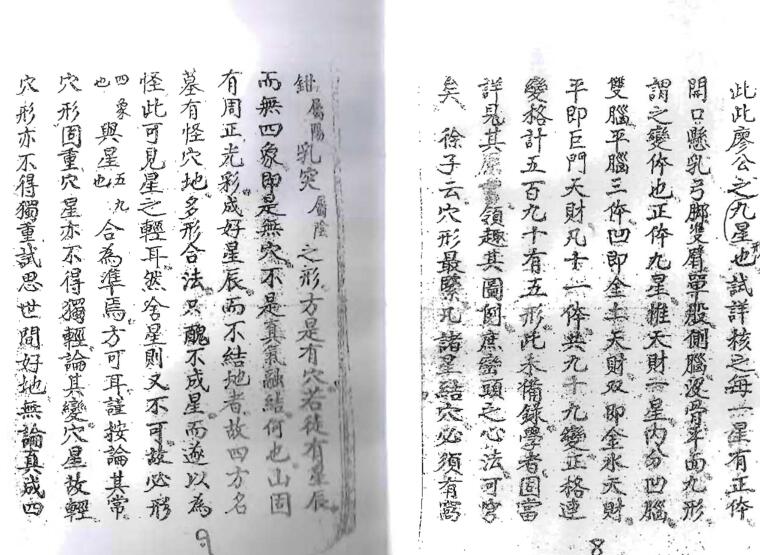 此此廖公之九星也試詳核之每一星有正体
開口懸乳弓脚雙臂單股側腦沒骨平面九形
謂之變体也正体九星惟天財一星內分凹腦
雙腦平腦三体凹即金土天財双即金水天財
平即巨門天財凡十一体共九十九變正格連
變格計五百九十有五形此未備錄學者固當
詳見其領趣其圖例庶巒頭之心法可窮
矣 徐子云穴形最緊凡諸星結穴必須有窩
鉗屬陽乳突屬陰之形方是有穴若徒有星辰
而無四象即是無穴不是真氣融結何也山固
有周正光彩成好星辰而不結地者故四方名
墓有怪穴地多形合法只醜不成星而遂以為
怪此可見星之輕耳然舍星則又不可故必形
四象也與星五九也合為準焉方可耳謹按論其常
穴形固重穴星亦不得獨輕論其變穴星故輕
穴形亦不得獨重試思世間好地無論真成四
8
9